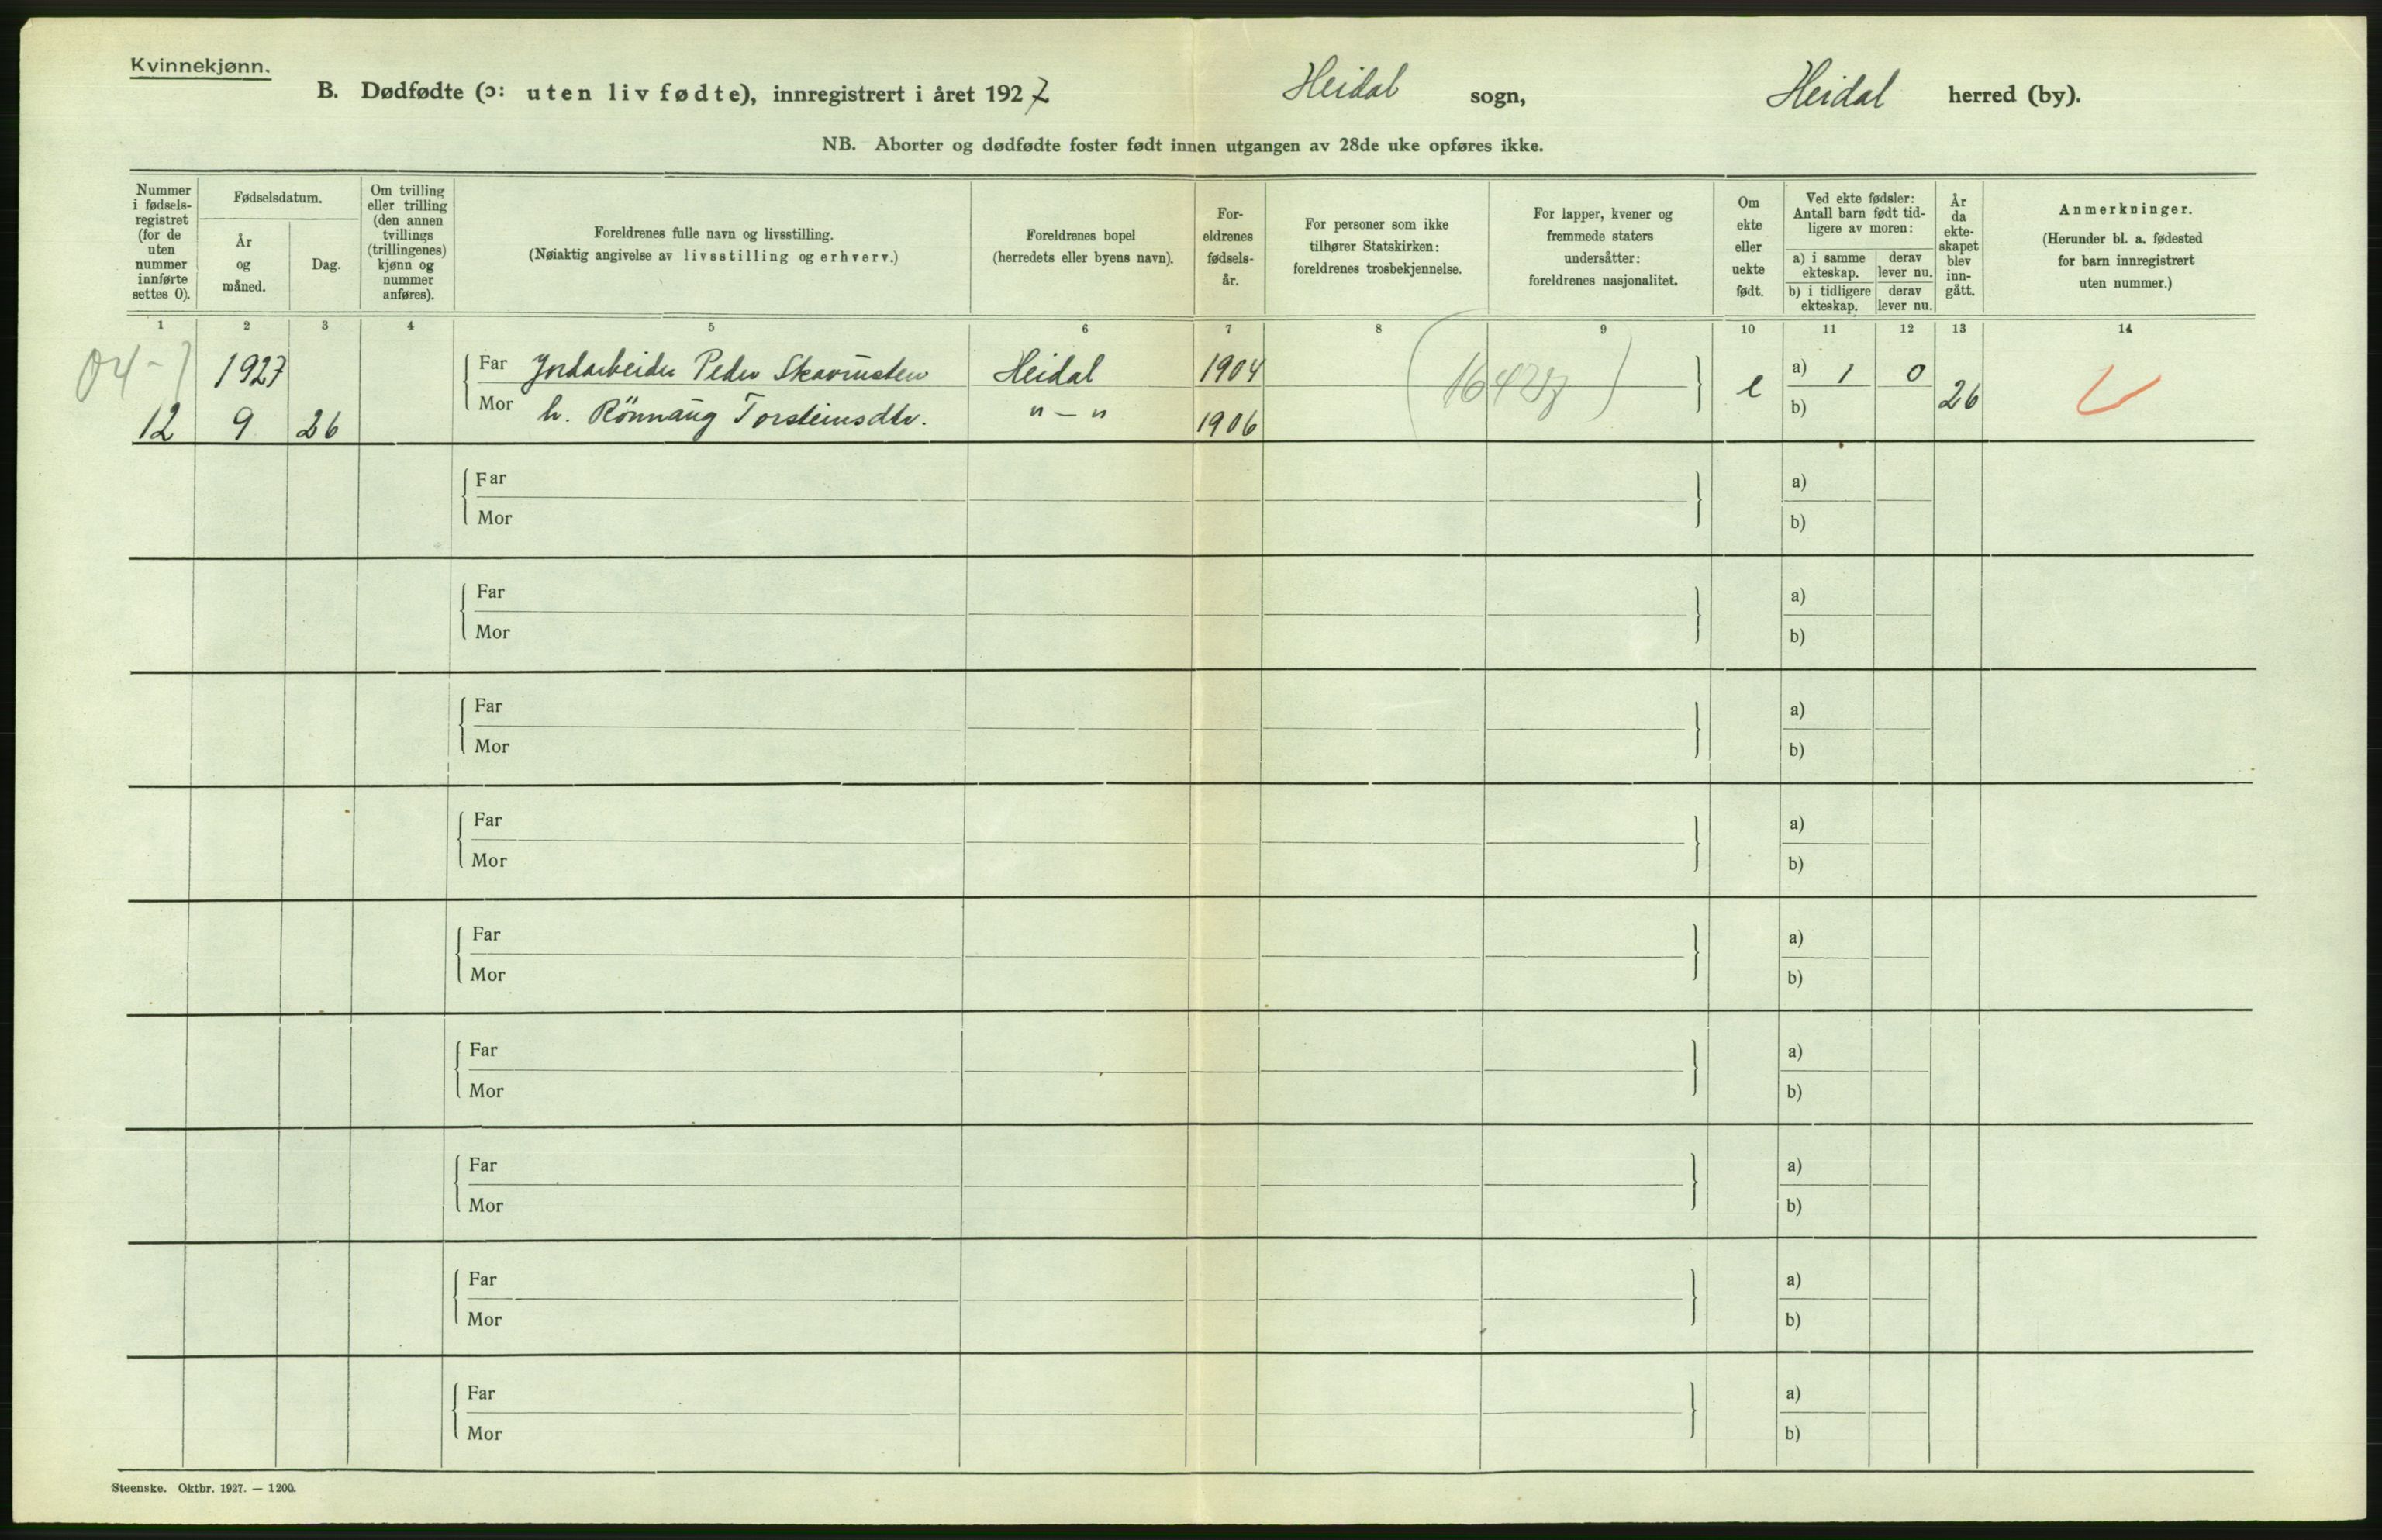 Kvinnekjønn.
B. Dødfødte (ɔ: uten liv fødte), innregistrert i året 1927 Heidal sogn, Heidal herred (by).
NB. Aborter og dødfødte foster født innen utgangen av 28de uke opføres ikke.
Nummer i fødsels- registret (for de uten nummer innførte settes 0).
Fødselsdatum.
År og måned.
Dag.
Om tvilling eller trilling (den annen tvillings (trillingenes) kjønn og nummer anføres).
Foreldrenes fulle navn og livsstilling.
(Nøiaktig angivelse av livsstilling og erhverv.)
Foreldrenes bopel
(herredets eller byens navn).
For- eldrenes fødsels- år.
For personer som ikke tilhører Statskirken: foreldrenes trosbekjennelse.
For lapper, kvener og fremmede staters undersåtter: foreldrenes nasjonalitet.
Om ekte eller uekte født.
Ved ekte fødsler: Antall barn født tid- ligere av moren:
a) i samme ekteskap.
derav lever nu.
b) i tidligere ekteskap.
derav lever nu.
År da ekte- skapet blev inn- gått.
Anmerkninger.
(Herunder bl. a. fødested for barn innregistrert uten nummer.)
1 2 3 4 5 6 7 8 9 10 11 12 13 14
04-1 1927 Far Jordarbeider Peder Heidal 1904 e a) 1 0 26
12 9 26 Mor h. Rönnaug Torsteinsdtr. " — " 1906 b)
Far a)
Mor b)
Far a)
Mor b)
Far a)
Mor b)
Far a)
Mor b)
Far a)
Mor b)
Far a)
Mor b)
Far a)
Mor b)
Far a)
Mor b)
Far a)
Mor b)
Steenske. Oktbr. 1927. — 1200.